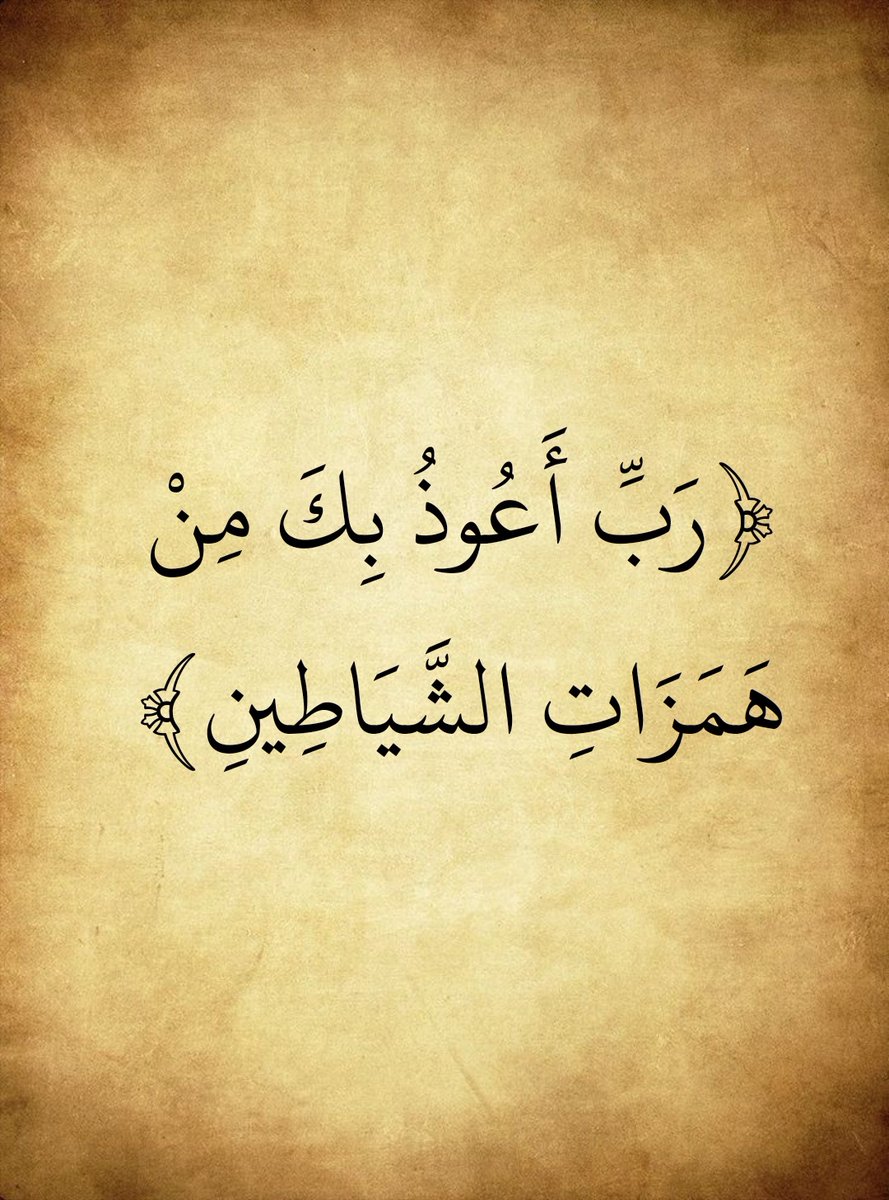 ﴿رَبِّ أَعُوذُ بِكَ مِنْ
هَمَزَاتِ الشَّيَاطِينِ﴾